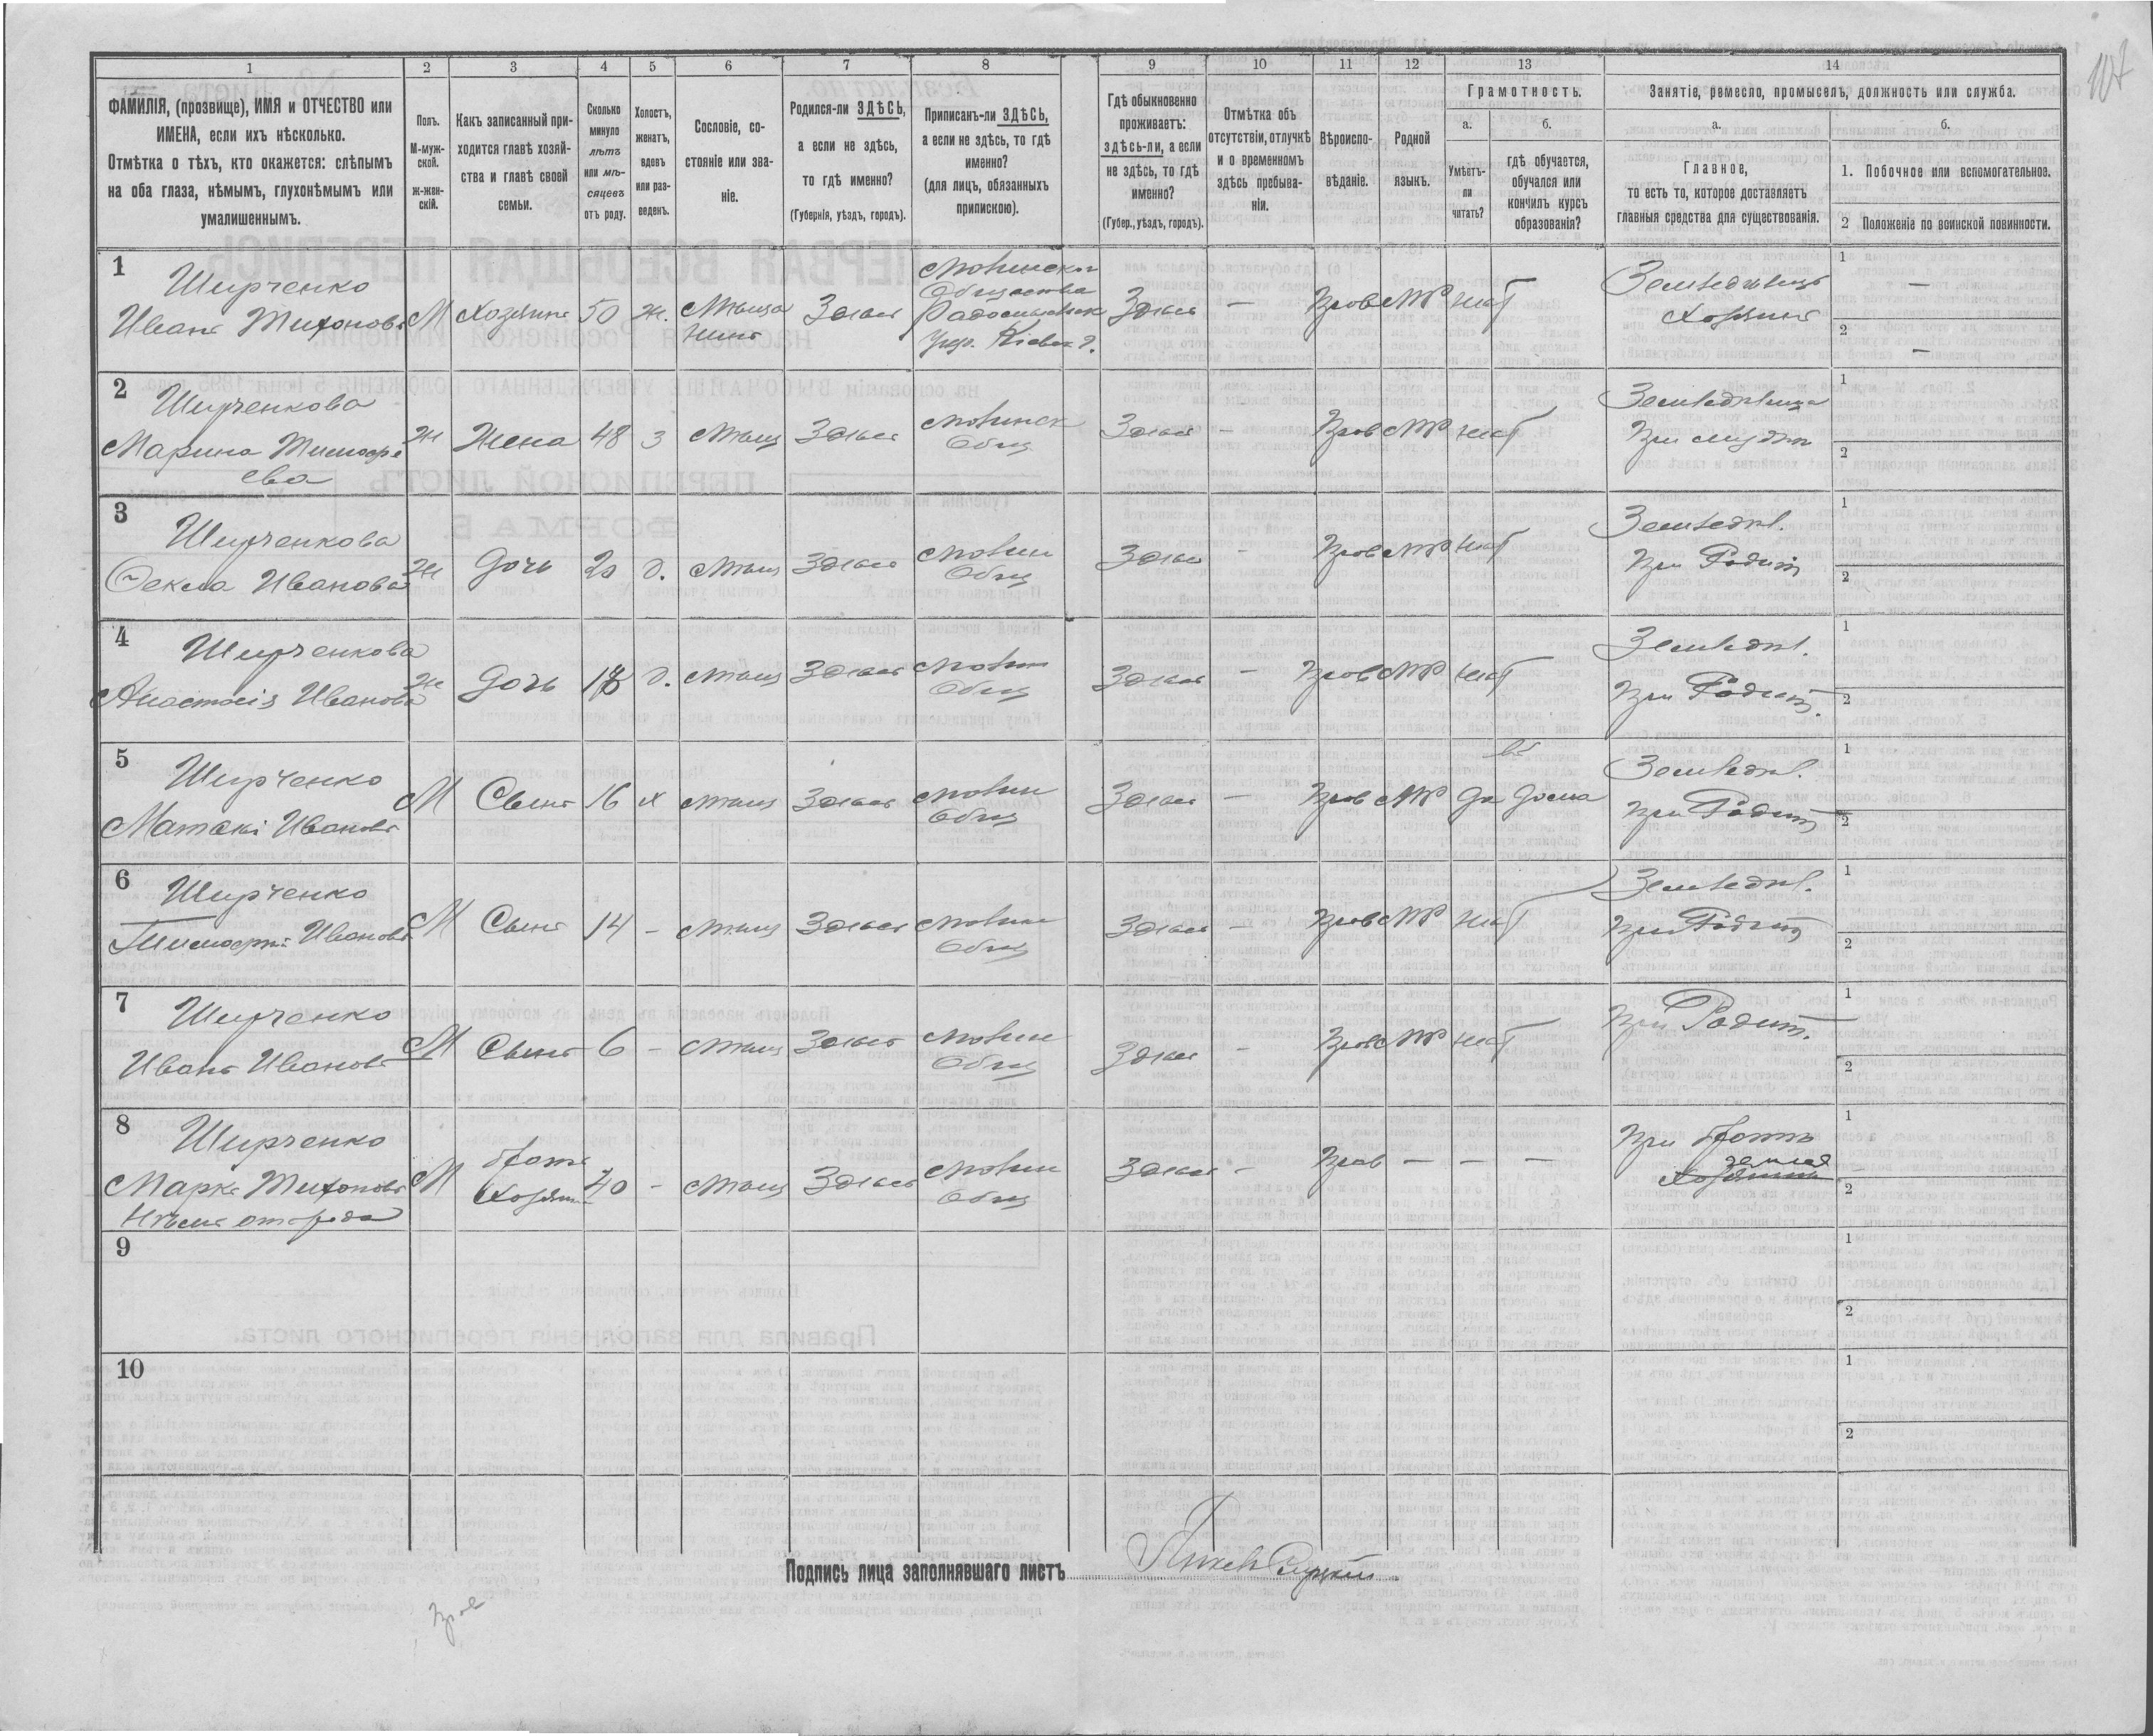 107
1 2 3 4 5 6 7 8 9 10 11 12 13 14
ФАМИЛІЯ, (прозвище), ИМЯ и ОТЧЕСТВО или
ИМЕНА, если ихъ нѣсколько.
Отмѣтка о тѣхъ, кто окажется: слѣпымъ
на оба глаза, нѣмымъ, глухонѣмымъ или
умалишеннымъ.
Полъ.
М-муж-
ской.
ж-жен-
скій.
Какъ записанный при-
ходится главѣ хозяй-
ства и главѣ своей
семьи.
Сколько
минуло
лѣтъ
или мѣ-
сяцевъ
отъ роду.
Холостъ,
женатъ,
вдовъ
или раз-
веденъ.
Сословіе, со-
стояніе или зва-
ніе.
Родился-ли ЗДѢСЬ,
а если не здѣсь,
то гдѣ именно?
(Губернія, уѣздъ, городъ).
Приписанъ-ли ЗДѢСЬ,
а если не здѣсь, то гдѣ
именно?
(для лицъ, обязанныхъ
припискою).
Гдѣ обыкновенно
проживаетъ:
здѣсь-ли, а если
не здѣсь, то гдѣ
именно?
(Губер., уѣздъ, городъ).
Отмѣтка объ
отсутствіи, отлучкѣ
и о временномъ
здѣсь пребыва-
ніи.
Вѣроиспо-
вѣданіе.
Родной
языкъ.
Грамотность.
а.
Умѣетъ-
ли
читать?
б.
гдѣ обучается,
обучался или
кончилъ курсъ
образованія?
Занятіе, ремесло, промыселъ, должность или служба.
а.
Главное,
то есть то, которое доставляетъ
главныя средства для существованія.
б.
1. Побочное или вспомогательное.
2 Положеніе по воинской повинности.
1
Ширченко
Иванъ Тихоновъ М Хозяинъ 50 ж. Мѣща
нинъ
Здѣсь
Общества
Кіевск г.
Здѣсь — Прав МР нѣт
Земледѣлецъ
Хозяинъ
1 —
2 —
2
Ширченкова
Марина Тимофе
ева
Ж Жена 48 З Мѣщ Здѣсь
Общ
Здѣсь - Прав МР нѣт
Земледѣлица
При мужѣ
1
2
3
Ширченкова
Ѳекла Иванова Ж Дочь 20 д. Мѣщ Здѣсь
Общ
Здѣсь - Прав МР нѣт
Земледѣл.
При Родит
1
2
4
Ширченкова
Анастасія Иванова Ж Дочь 18 д. Мѣщ Здѣсь
Общ
Здѣсь - Прав МР нѣт
Земледѣл.
При Родит.
1
2
5
Ширченко
Матвѣй Ивановъ М Сынъ 16 х Мѣщ Здѣсь
Общ
Здѣсь - Прав МР Да Дома
Земледѣл.
При Родит
1
2
6
Ширченко
Тимофей Ивановъ М Сынъ 14 - Мѣщ Здѣсь
Общ
Здѣсь - Прав МР нѣт
Земледѣл.
При Родит
1
2
7
Ширченко
Иванъ Ивановъ М Сынъ 6 - Мѣщ Здѣсь
Общ
Здѣсь - Прав МР нѣт
При Родит.
1
2
8
Ширченко
Марко Тихоновъ
Нѣмъ отъ рода
М братъ
Хозяин
40 - Мѣщ Здѣсь
Общ
Здѣсь - Прав — — —
При братѣ
земля
Хозяинъ
1
2
9
1
2
10
1
2
Подпись лица заполнявшаго листъ
Прав